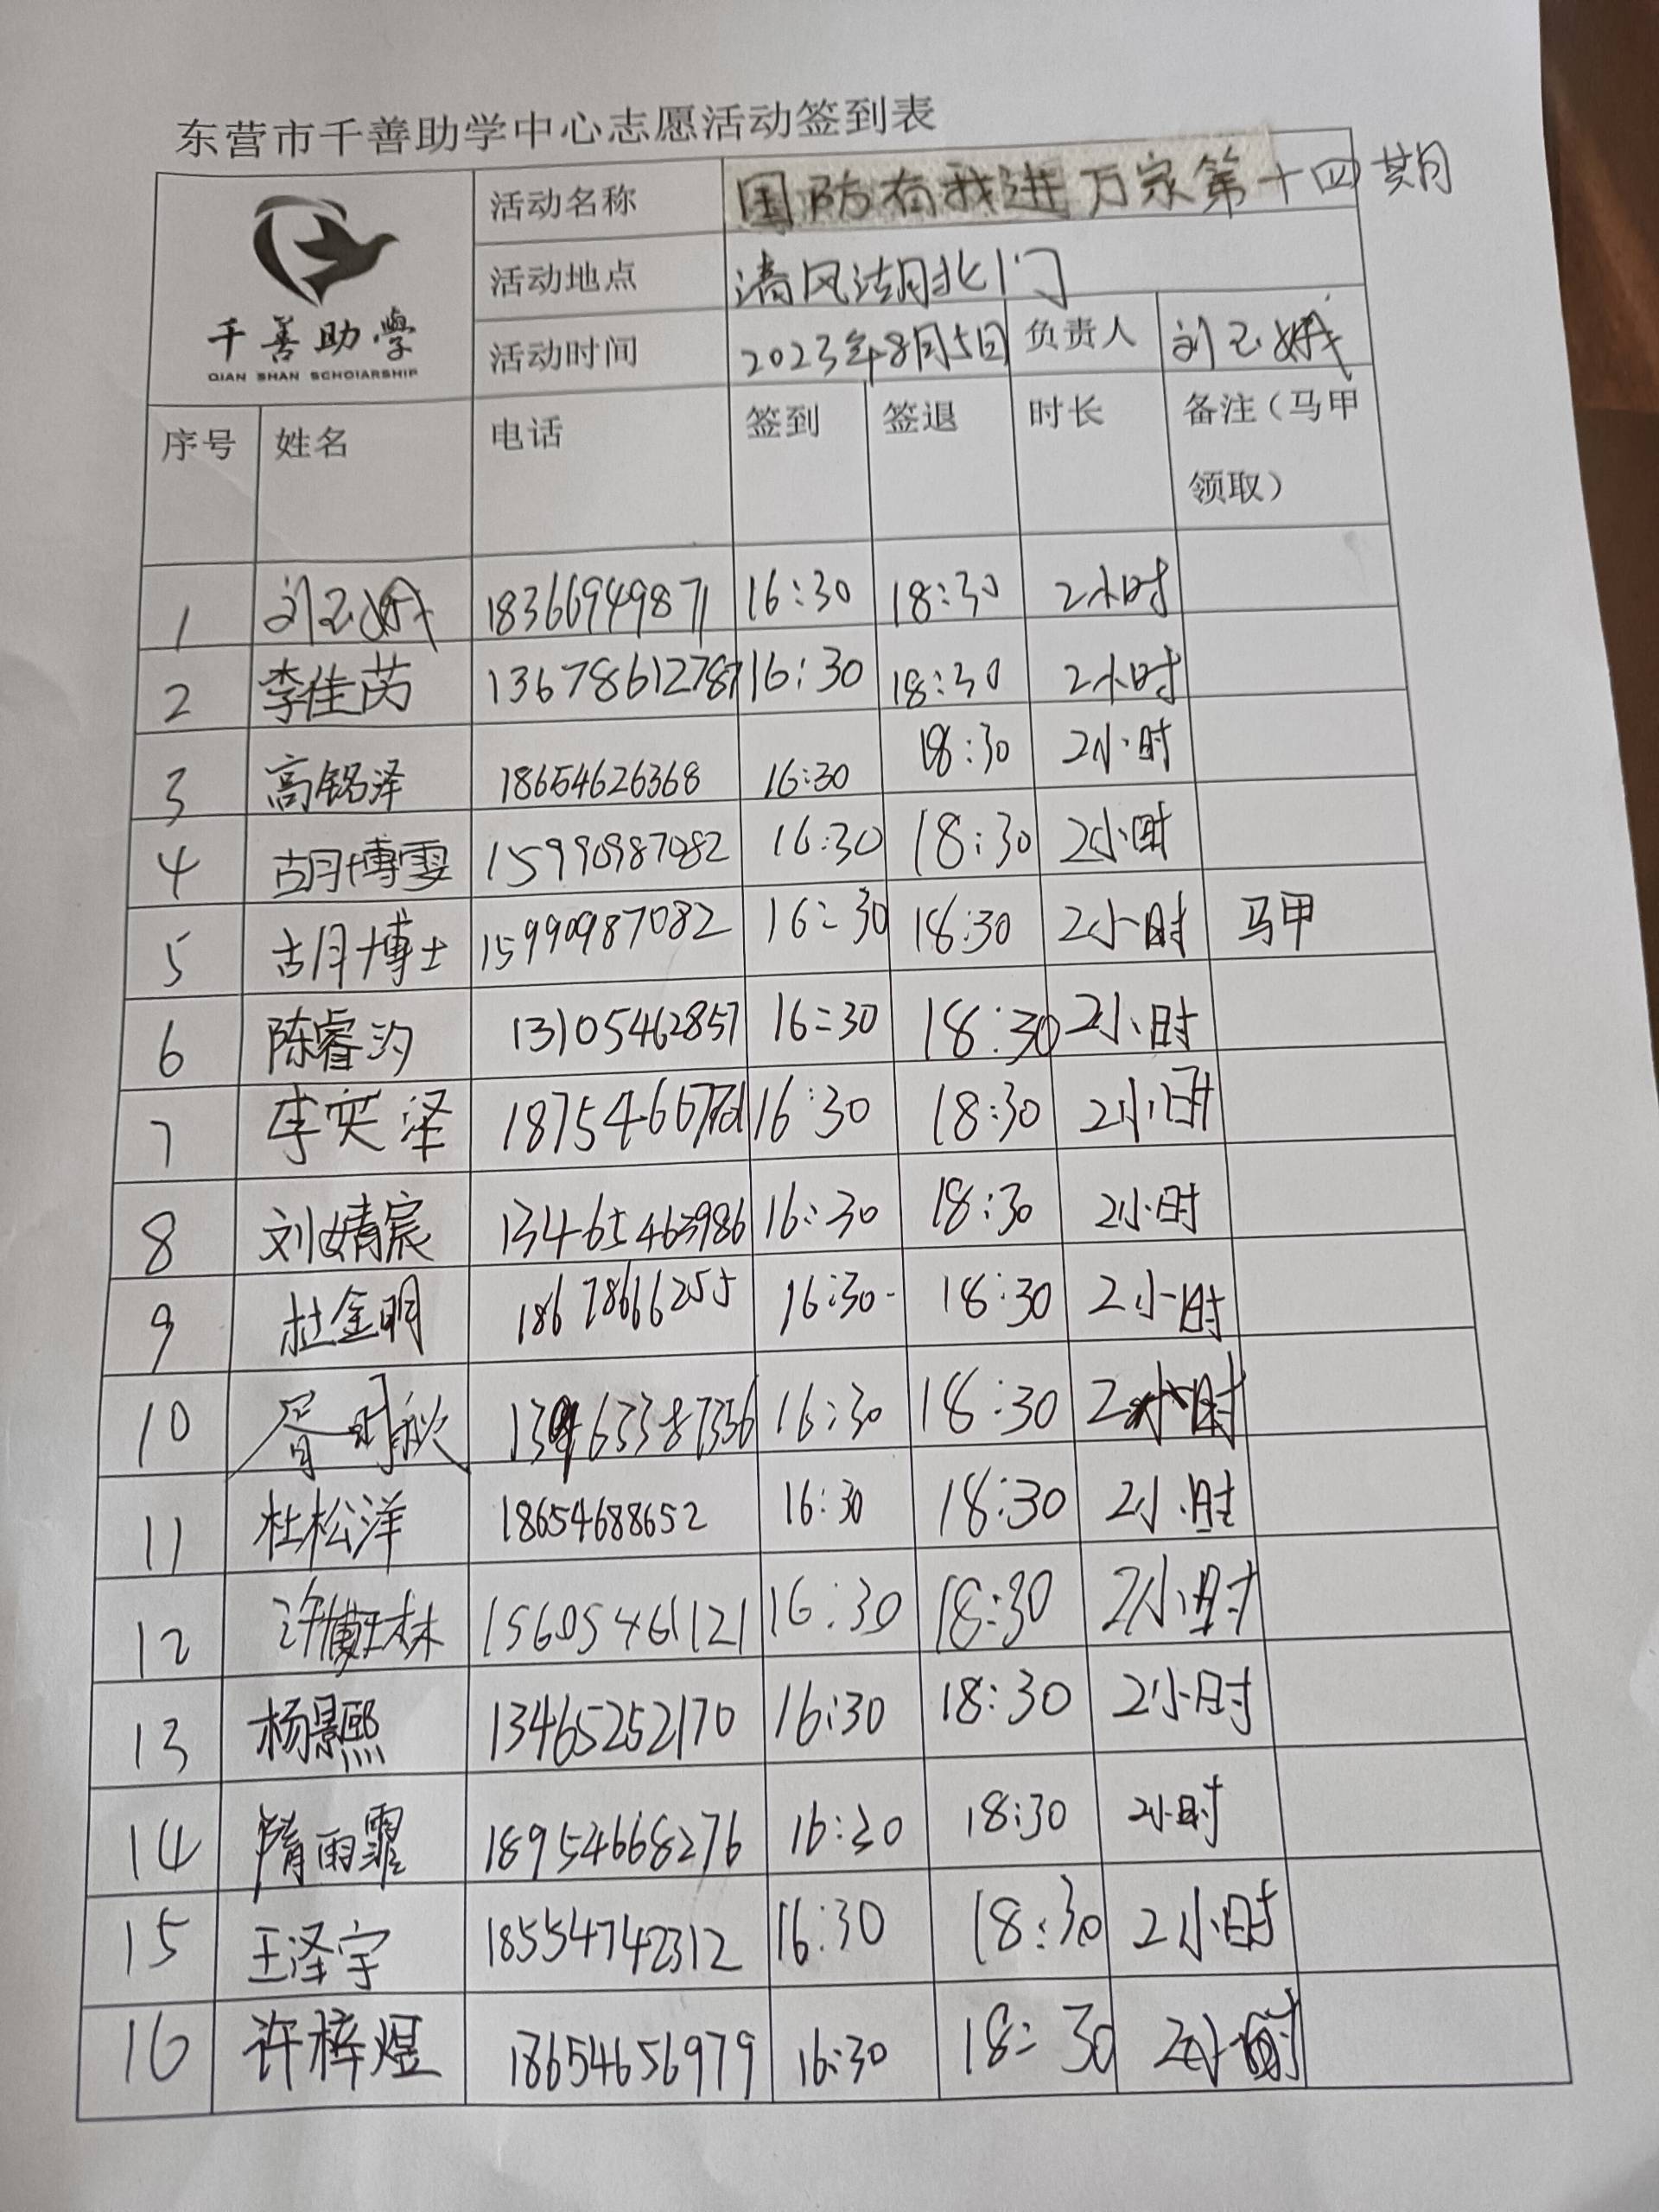 东营市千善助学中心志愿活动签到表
千善助学
QIAN SHAN SCHOIARSHIP
活动名称 国防有我进万家第十四期
活动地点 清风湖北门
活动时间 2023年8月5日 负责人 刘玉娥
序号 姓名 电话 签到 签退 时长 备注（马甲
领取）
1 刘玉娥 18366949871 16:30 18:30 2小时
2 李佳芮 13678612787 16:30 18:30 2小时
3 高铭泽 18654626368 16:30 18:30 2小时
4 胡博雯 15990987082 16:30 18:30 2小时
5 胡博士 15990987082 16:30 18:30 2小时 马甲
6 陈睿汐 13105462857 16:30 18:30 2小时
7 李奕泽 16:30 18:30 2小时
8 刘婧宸 13465463986 16:30 18:30 2小时
9 杜金明 18678666255 16:30 18:30 2小时
10 胥时秋 16:30 18:30 2小时
11 杜松洋 18654688652 16:30 18:30 2小时
12 15605461121 16:30 18:30 2小时
13 杨景熙 13465252170 16:30 18:30 2小时
14 隋雨霏 18954668276 16:30 18:30 2小时
15 王泽宇 18554742312 16:30 18:30 2小时
16 许梓煜 18654656979 16:30 18:30 2小时